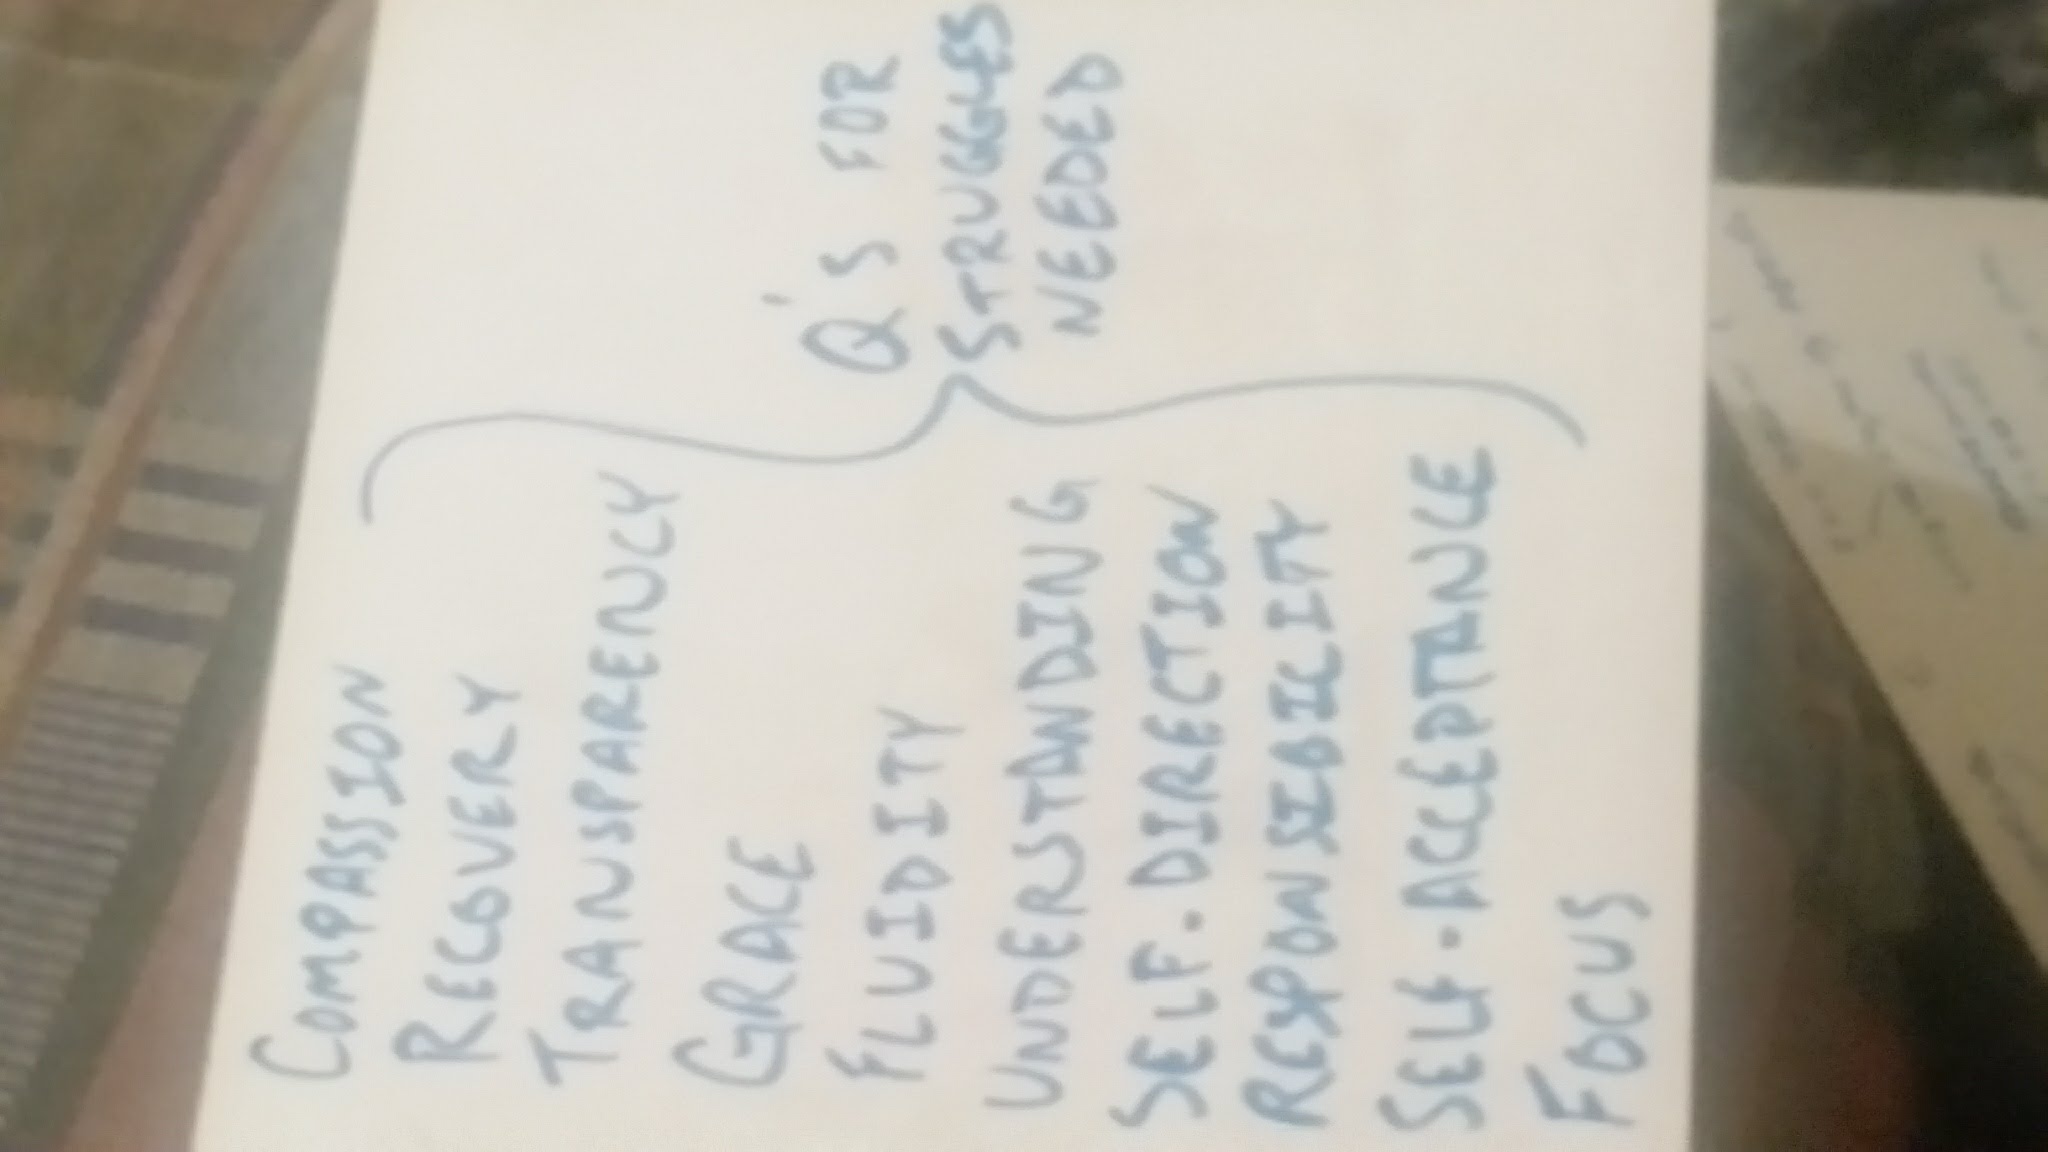 COMPASSION
RECOVERY
TRANSPARENCY
GRACE
FLUIDITY
UNDERSTANDING
SELF-DIRECTION
RESPONSIBILITY
SELF-ACCEPTANCE
FOCUS
Q'S FOR
STRUGGLES
NEEDED